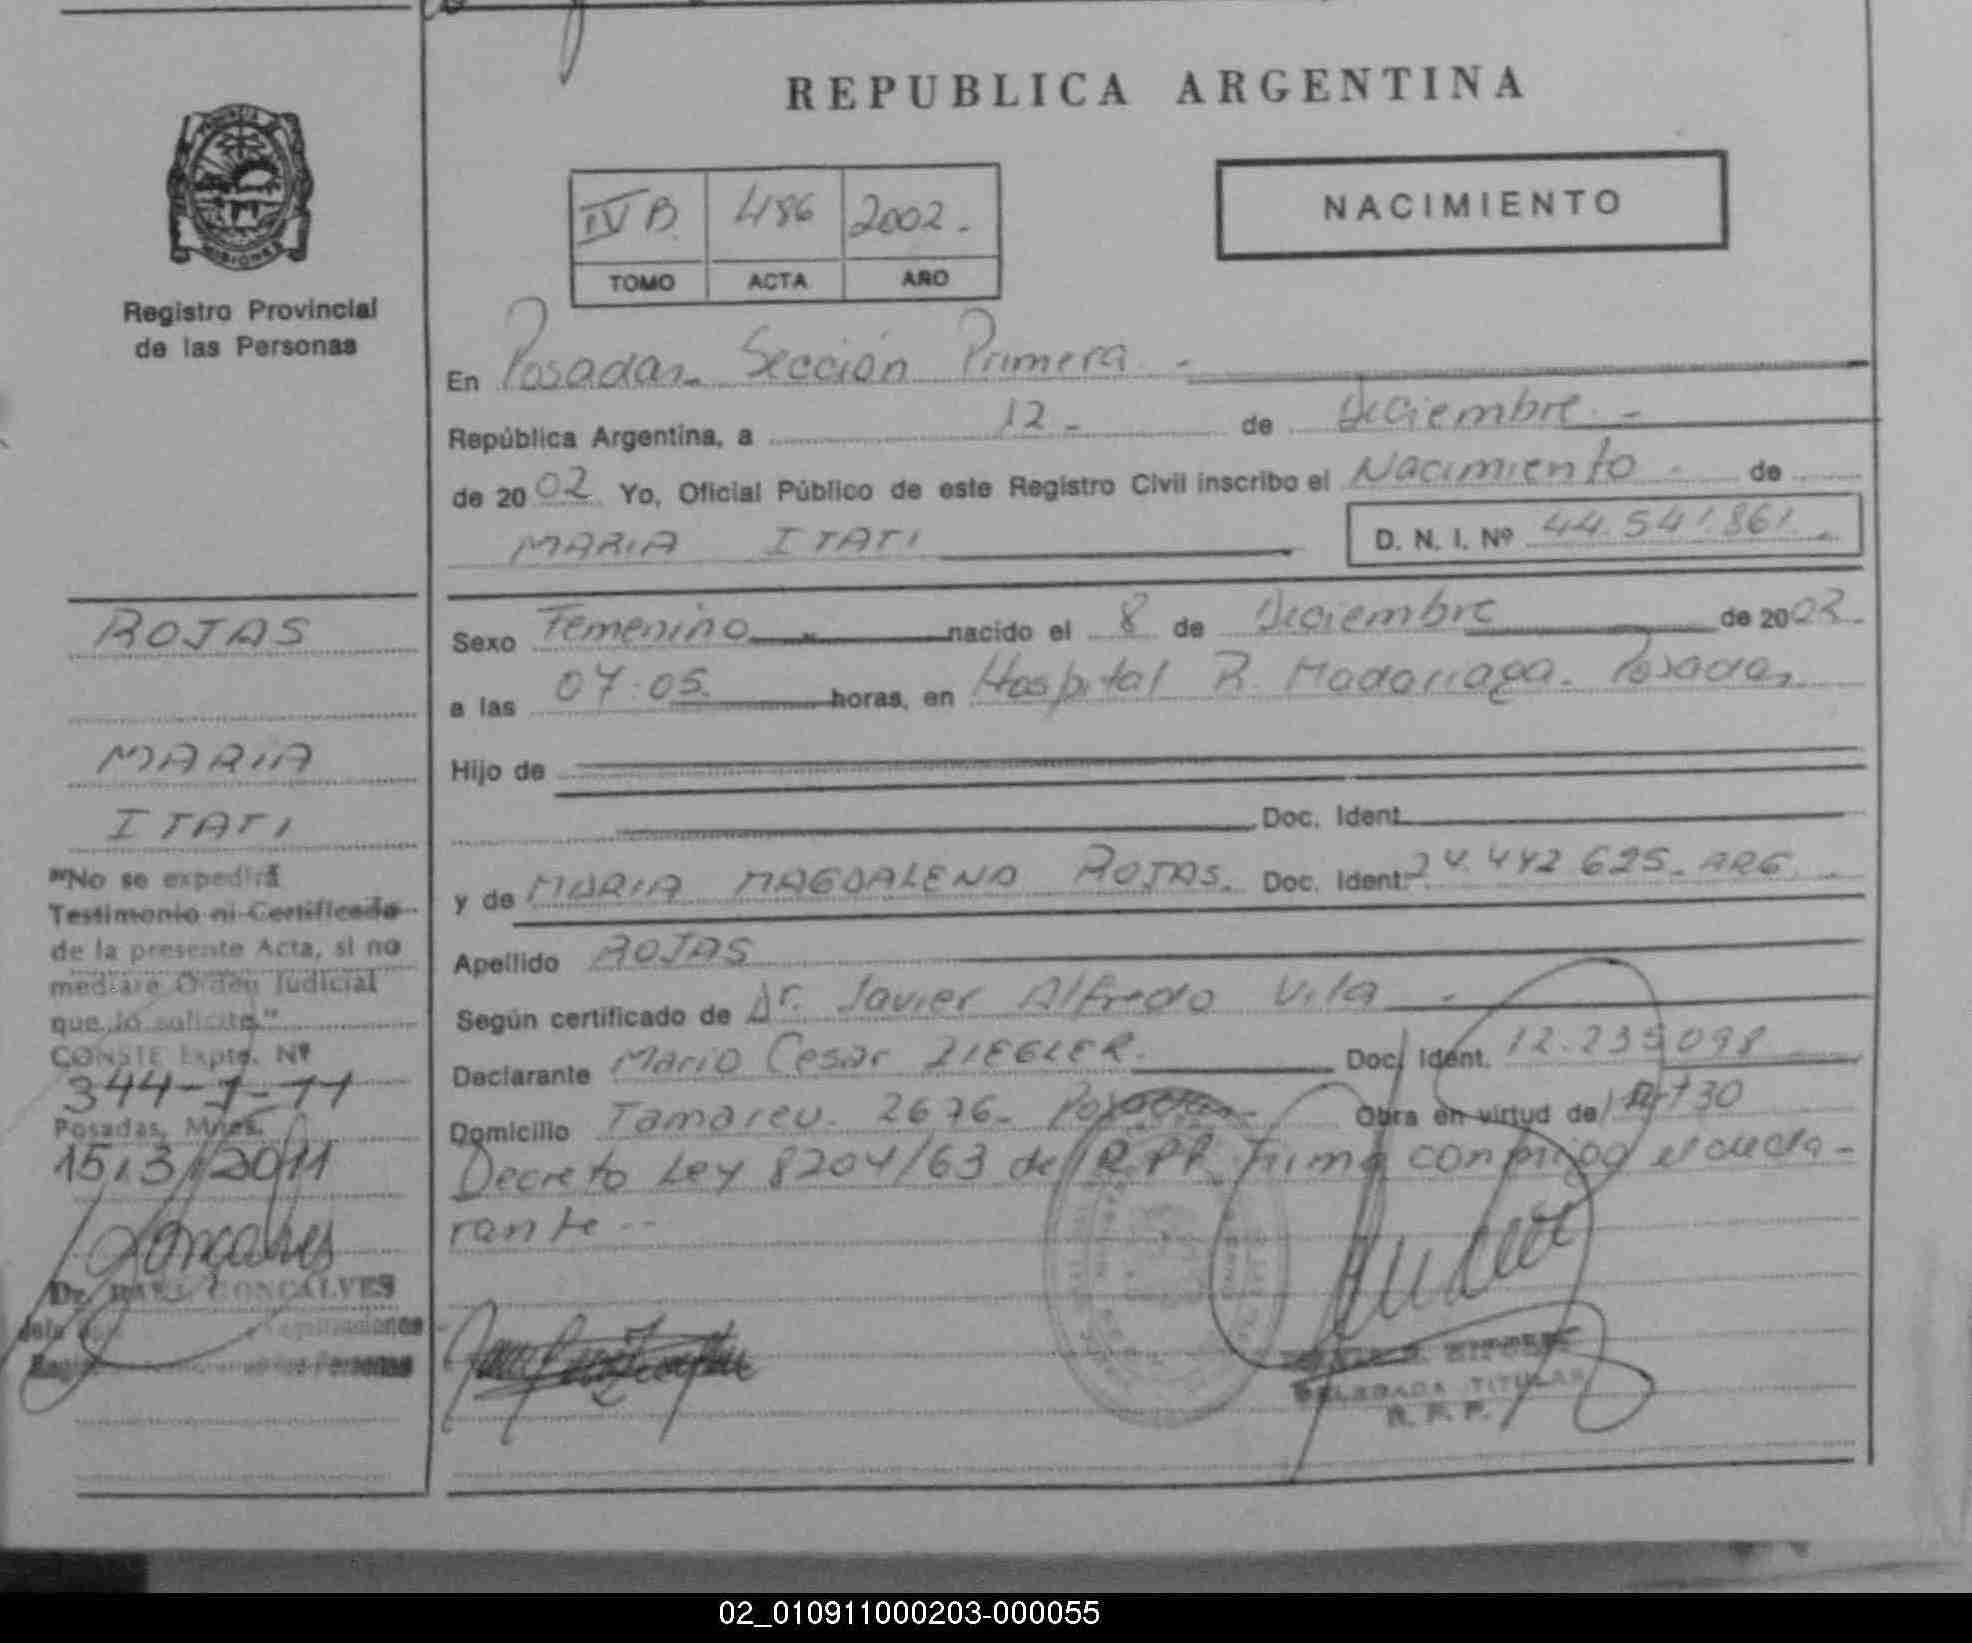 REPUBLICA ARGENTINA
IV B. 486 2002.
TOMO ACTA AÑO
NACIMIENTO
PROVINCIA
MISIONES
Registro Provincial
de las Personas
En Posadas. Sección Primera.-
República Argentina, a 12- de Diciembre.-
de 2002 Yo, Oficial Público de este Registro Civil inscribo el Nacimiento. de
MARIA ITATI
D. N. I. Nº 44.541.861.
Sexo Femenino nacido el 8 de Diciembre de 2002.
a las 07:05. horas, en Hospital R. Madariaga. Posadas
Hijo de
Doc. Ident.
y de MARIA MAGDALENA ROJAS. Doc. Ident. 24.442 625. ARG.
Apellido ROJAS
Según certificado de Dr. Javier Alfredo Vila.
Declarante Mario Cesar ZIEGLER. Doc. Ident. 12.235098
Domicilio 2676- Posadas- Obra en virtud del Art 30
Decreto Ley 8204/63 del RPP. Firma conmigo el decla-
rante--
DELEGADA TITULAR
R. P. P.
ROJAS
MARIA
ITATI
"No se expedirá
Testimonio ni Certificado
de la presente Acta, si no
mediare Orden Judicial
que lo solicite."
CONSTE Expte. Nº
344-J-11
Posadas, Mnes.
15/3/2011
Goncalves
Dr. GONCALVES
de las Personas
02_010911000203-000055